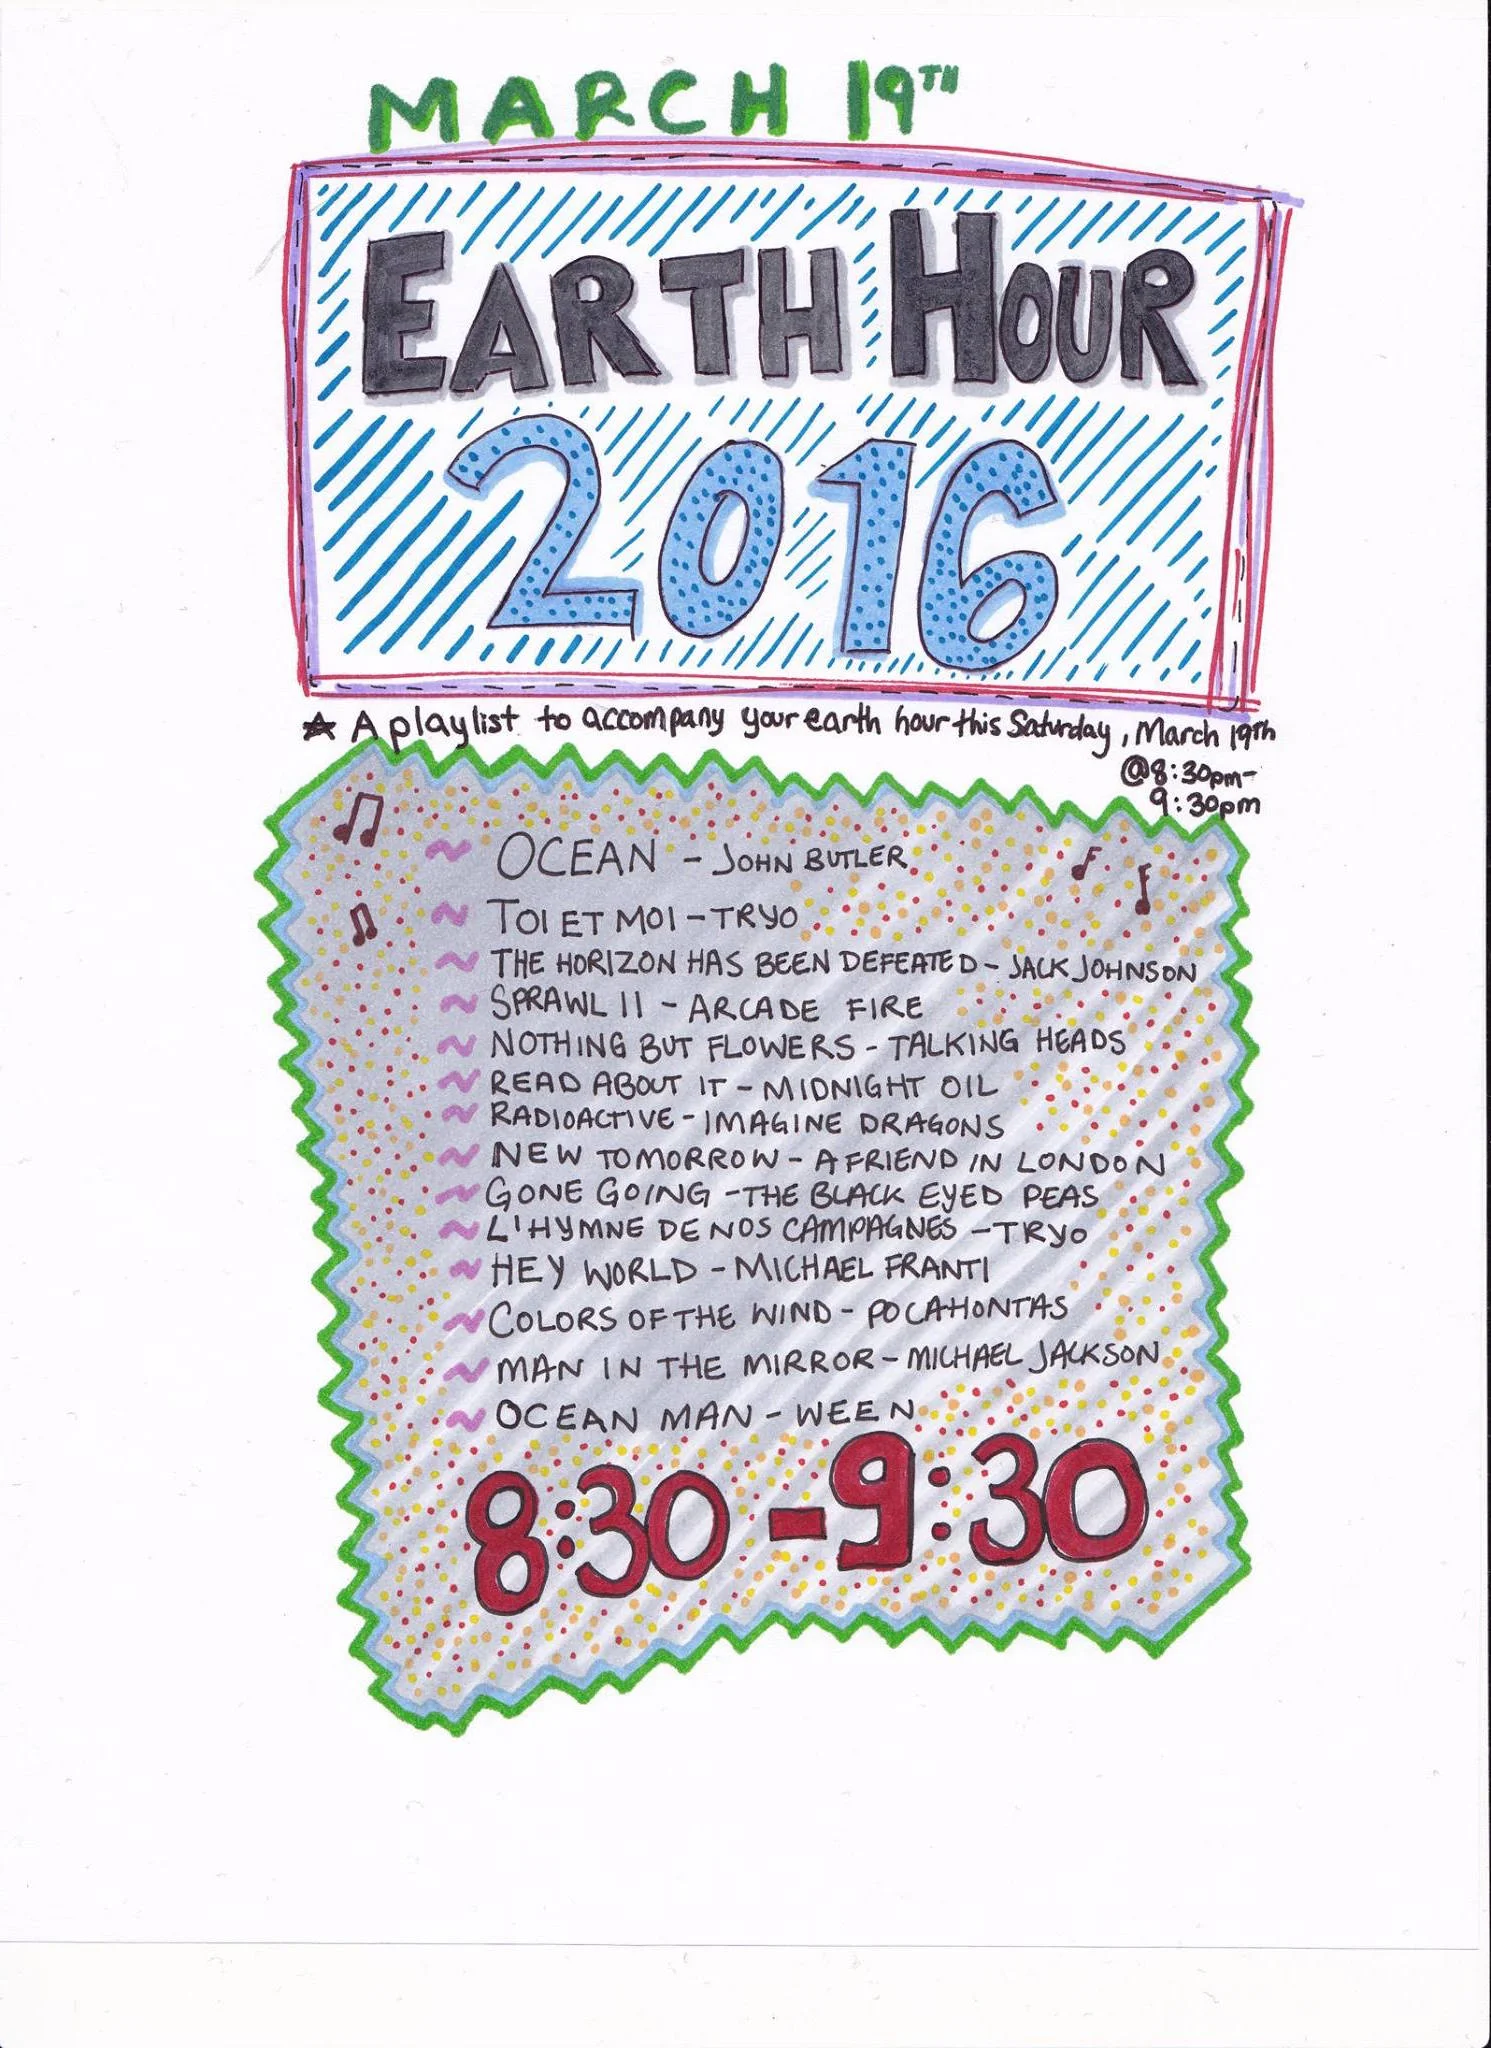 MARCH 19TH
EARTH HOUR
2016
A playlist to accompany your earth hour this Saturday, March 19th
@8:30pm-
9:30pm
~ OCEAN - JOHN BUTLER
~ TOI ET MOI - TRYO
~ THE HORIZON HAS BEEN DEFEATED - JACK JOHNSON
~ SPRAWL II - ARCADE FIRE
~ NOTHING BUT FLOWERS - TALKING HEADS
~ READ ABOUT IT - MIDNIGHT OIL
~ RADIOACTIVE - IMAGINE DRAGONS
~ NEW TOMORROW - A FRIEND IN LONDON
~ GONE GOING - THE BLACK EYED PEAS
~ L'HYMNE DE NOS CAMPAGNES - TRYO
~ HEY WORLD - MICHAEL FRANTI
~ COLORS OF THE WIND - POCAHONTAS
~ MAN IN THE MIRROR - MICHAEL JACKSON
~ OCEAN MAN - WEEN
8:30 - 9:30